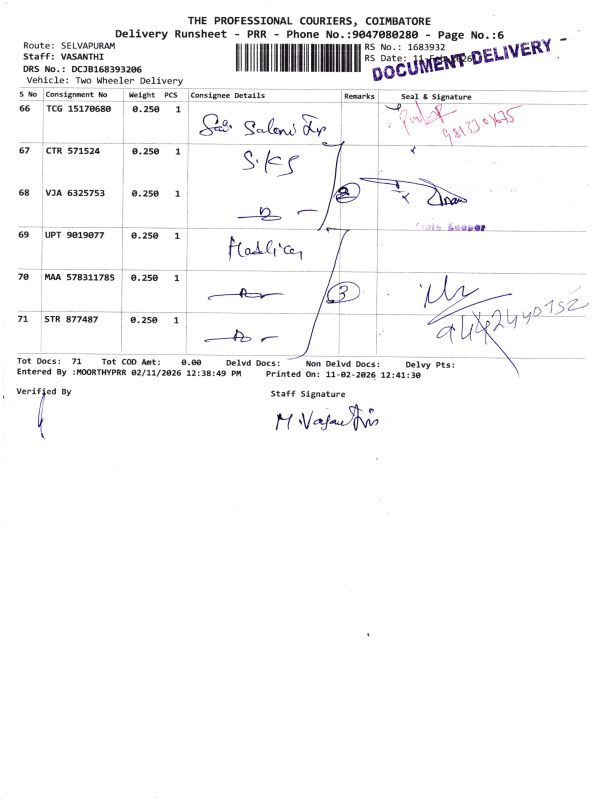 THE PROFESSIONAL COURIERS, COIMBATORE
Delivery Runsheet - PRR - Phone No.:9047080280 - Page No.:6
Route: SELVAPURAM
Staff: VASANTHI
DRS No.: DCJB168393206
Vehicle: Two Wheeler Delivery
RS No.: 1683932
RS Date: 11-Feb-2026
DOCUMENT DELIVERY
S No Consignment No Weight PCS Consignee Details Remarks Seal & Signature
66 TCG 15170680 0.250 1 Sai Saloni
67 CTR 571524 0.250 1 S.K.S
68 VJA 6325753 0.250 1 2
69 UPT 9019077 0.250 1
70 MAA 578311785 0.250 1 3
71 STR 877487 0.250 1
Tot Docs: 71 Tot COD Amt: 0.00 Delvd Docs: Non Delvd Docs: Delvy Pts:
Entered By :MOORTHYPRR 02/11/2026 12:38:49 PM Printed On: 11-02-2026 12:41:30
Verified By Staff Signature
M. Vasanthi